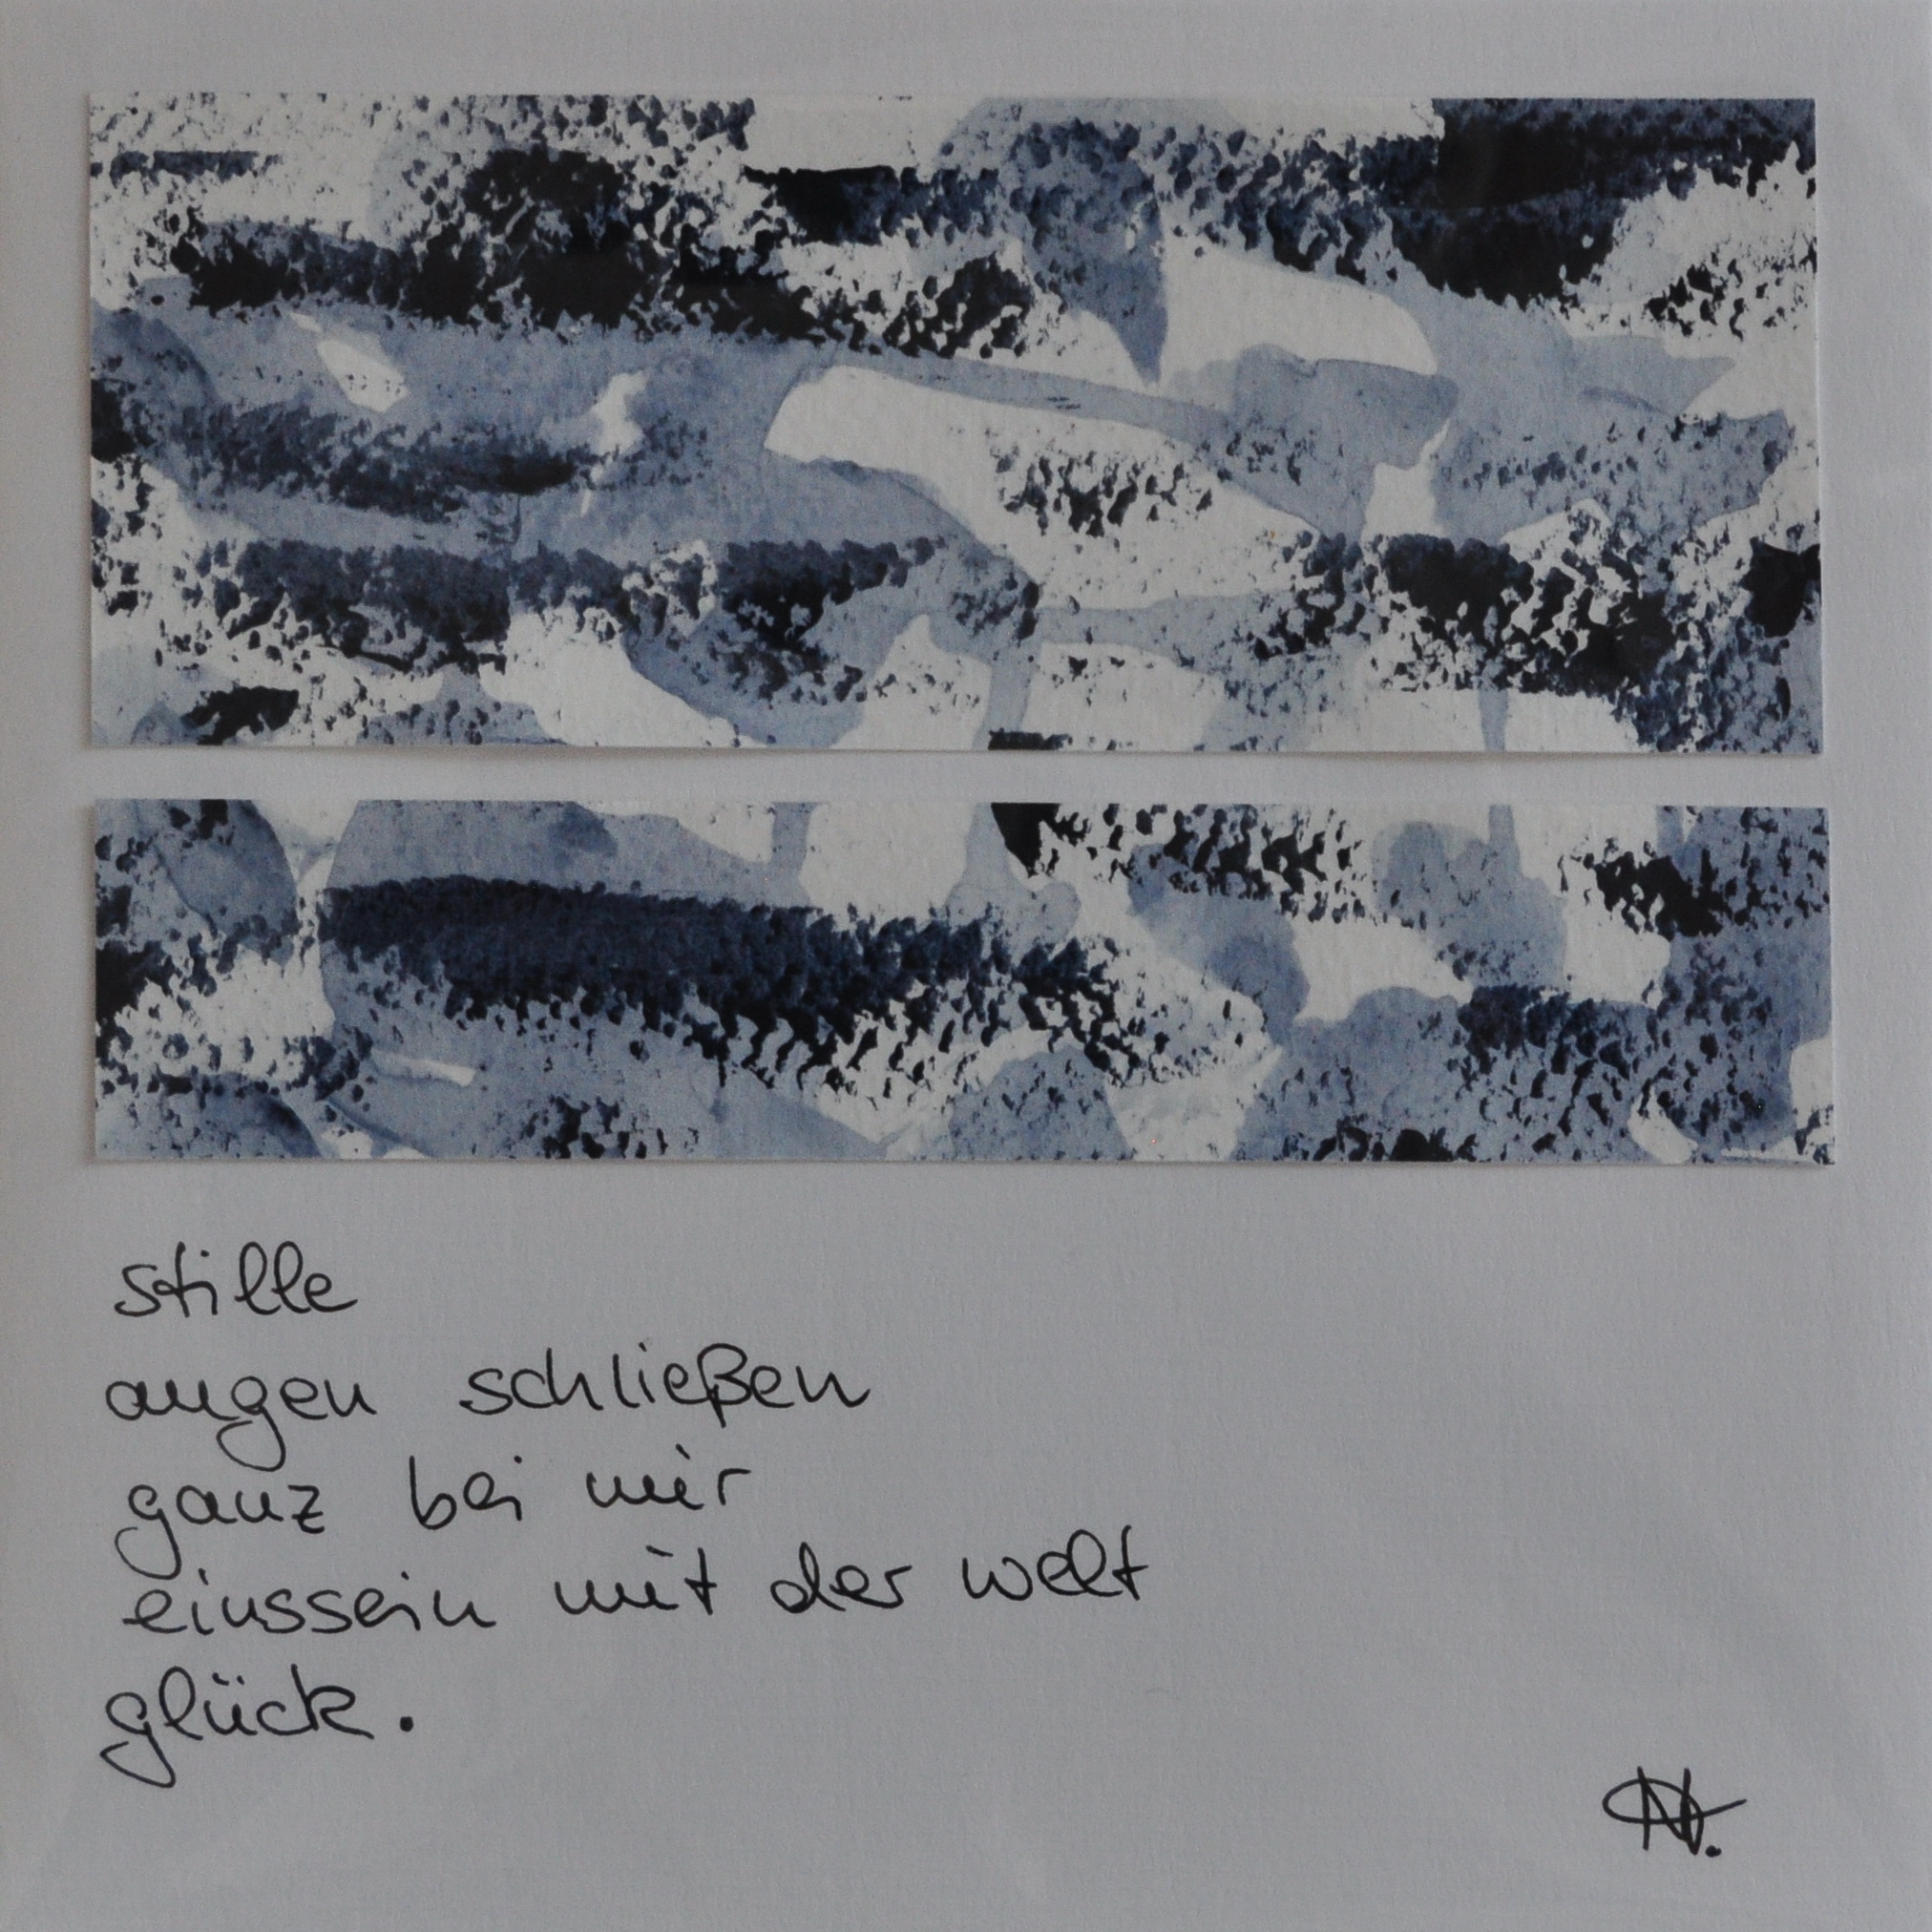 stille
augen schließen
ganz bei mir
einssein mit der welt
glück.